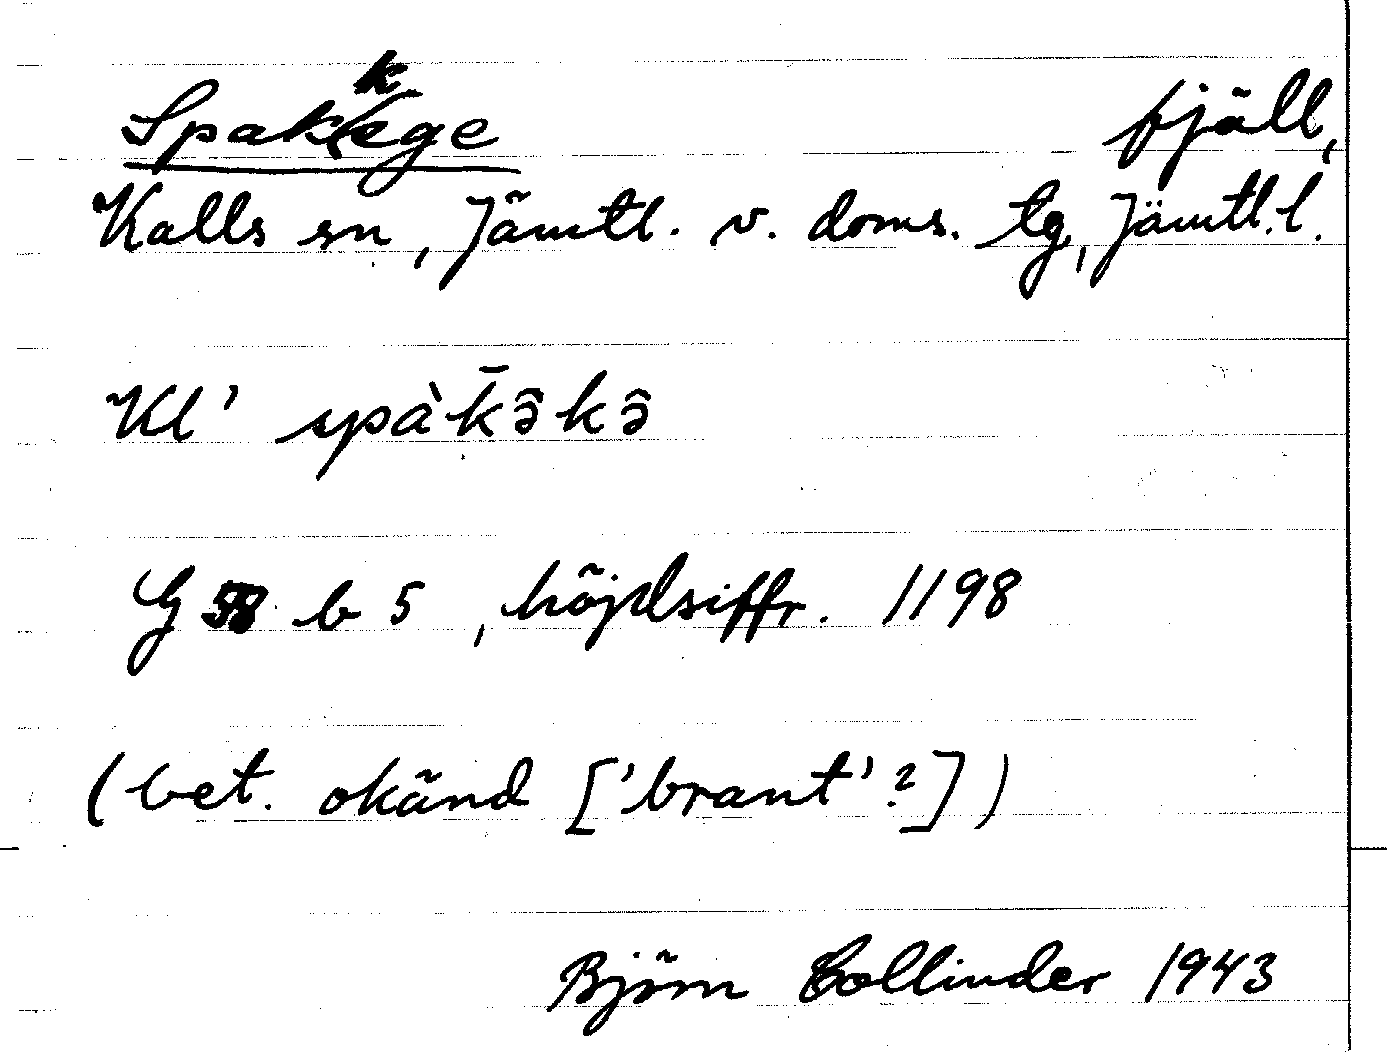 Spakkege fjäll,
Kalls sn, Jämtl. v. doms. tg, Jämtl.l.
Kl' spàk̄ə̂kə̂
G 58 b 5, höjdsiffr. 1198
(bet. okänd ['brant'?])
Björn Collinder 1943